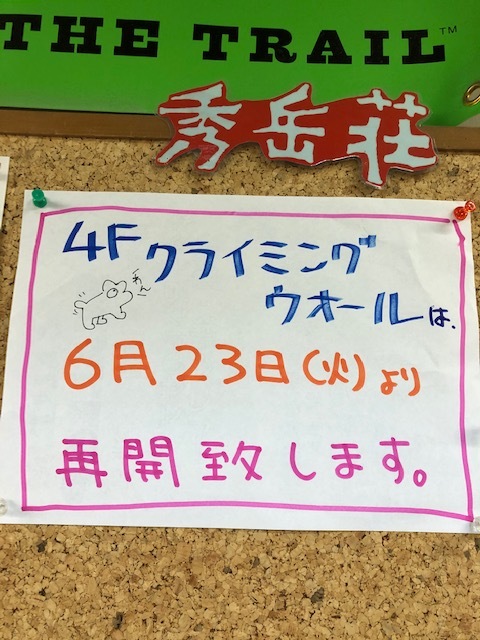 THE TRAIL™
秀岳荘
4Fクライミング
わん
ウオールは、
6月23日(火)より
再開致します。